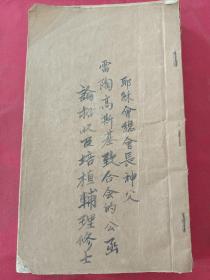 耶穌會總會長神父
雷陶高斯基致合会的公函
論招收及培植輔理修士